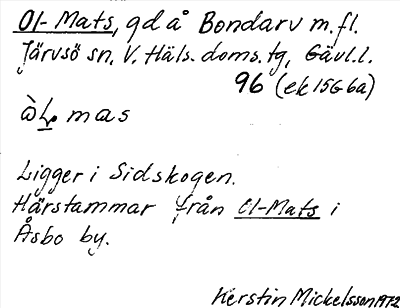 Ol-Mats, gd å Bondarv m.fl.
Järvsö sn. V. Häls. doms. tg, Gävl.l.
96 (ek 15G 6a)
mas
Ligger i Sidskogen.
Härstammar från Ol-Mats i
Åsbo by.
Kerstin Mickelsson 1972